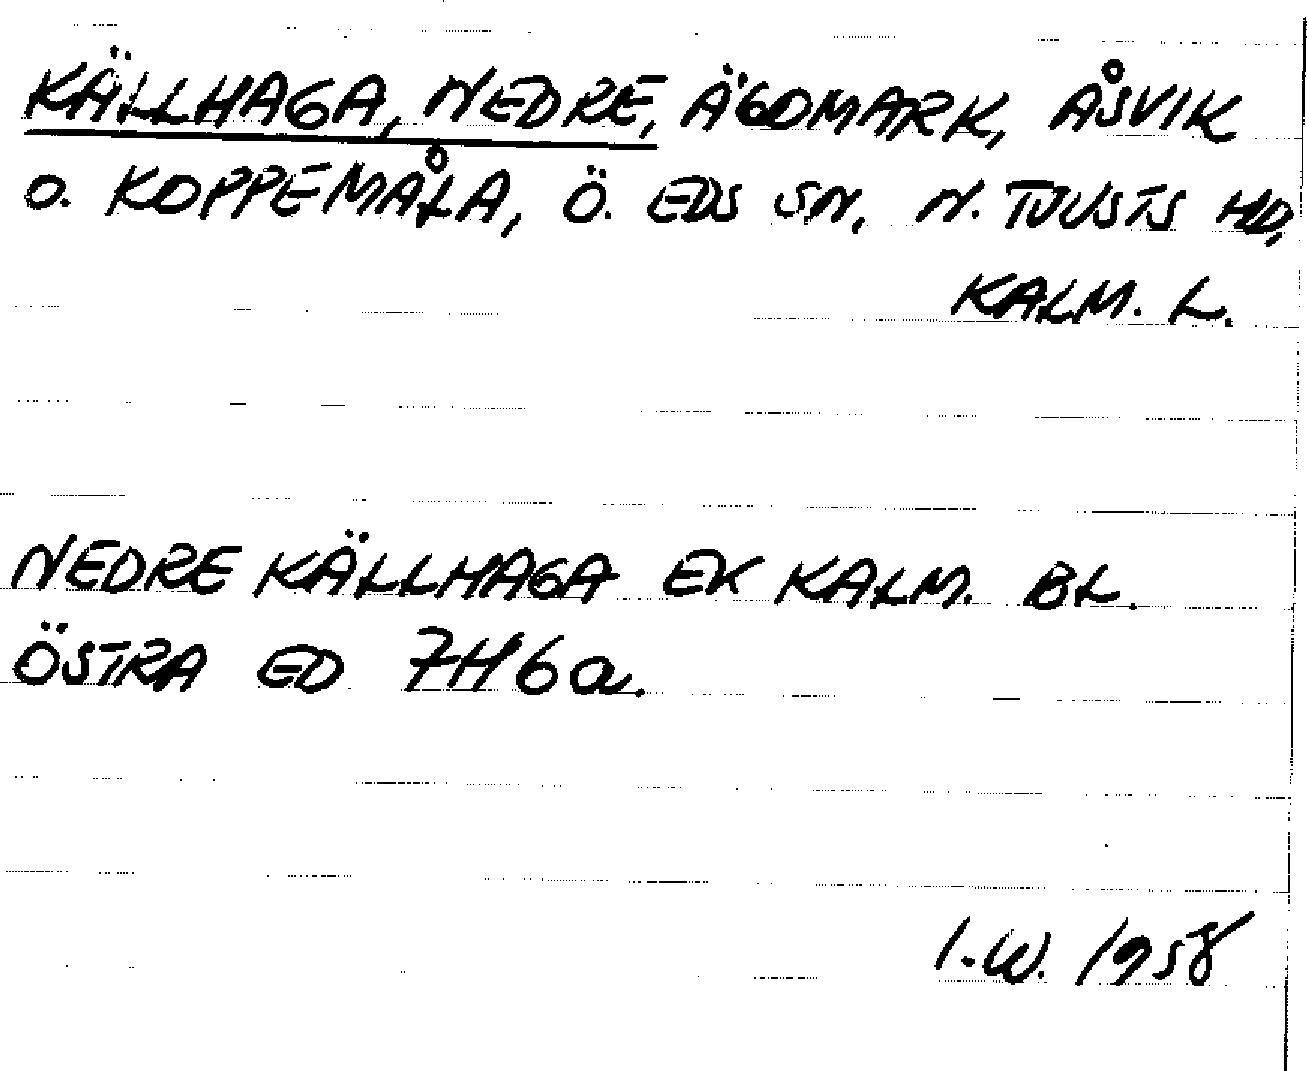 KÄLLHAGA, NEDRE, ÄGDMARK, ÅSVIK
O. KOPPEMÅLA, Ö. EDS SN, N. TJUSTS HD,
KALM. L.
NEDRE KÄLLHAGA EK KALM. BL.
ÖSTRA ED 7H6a.
I.W. 1958